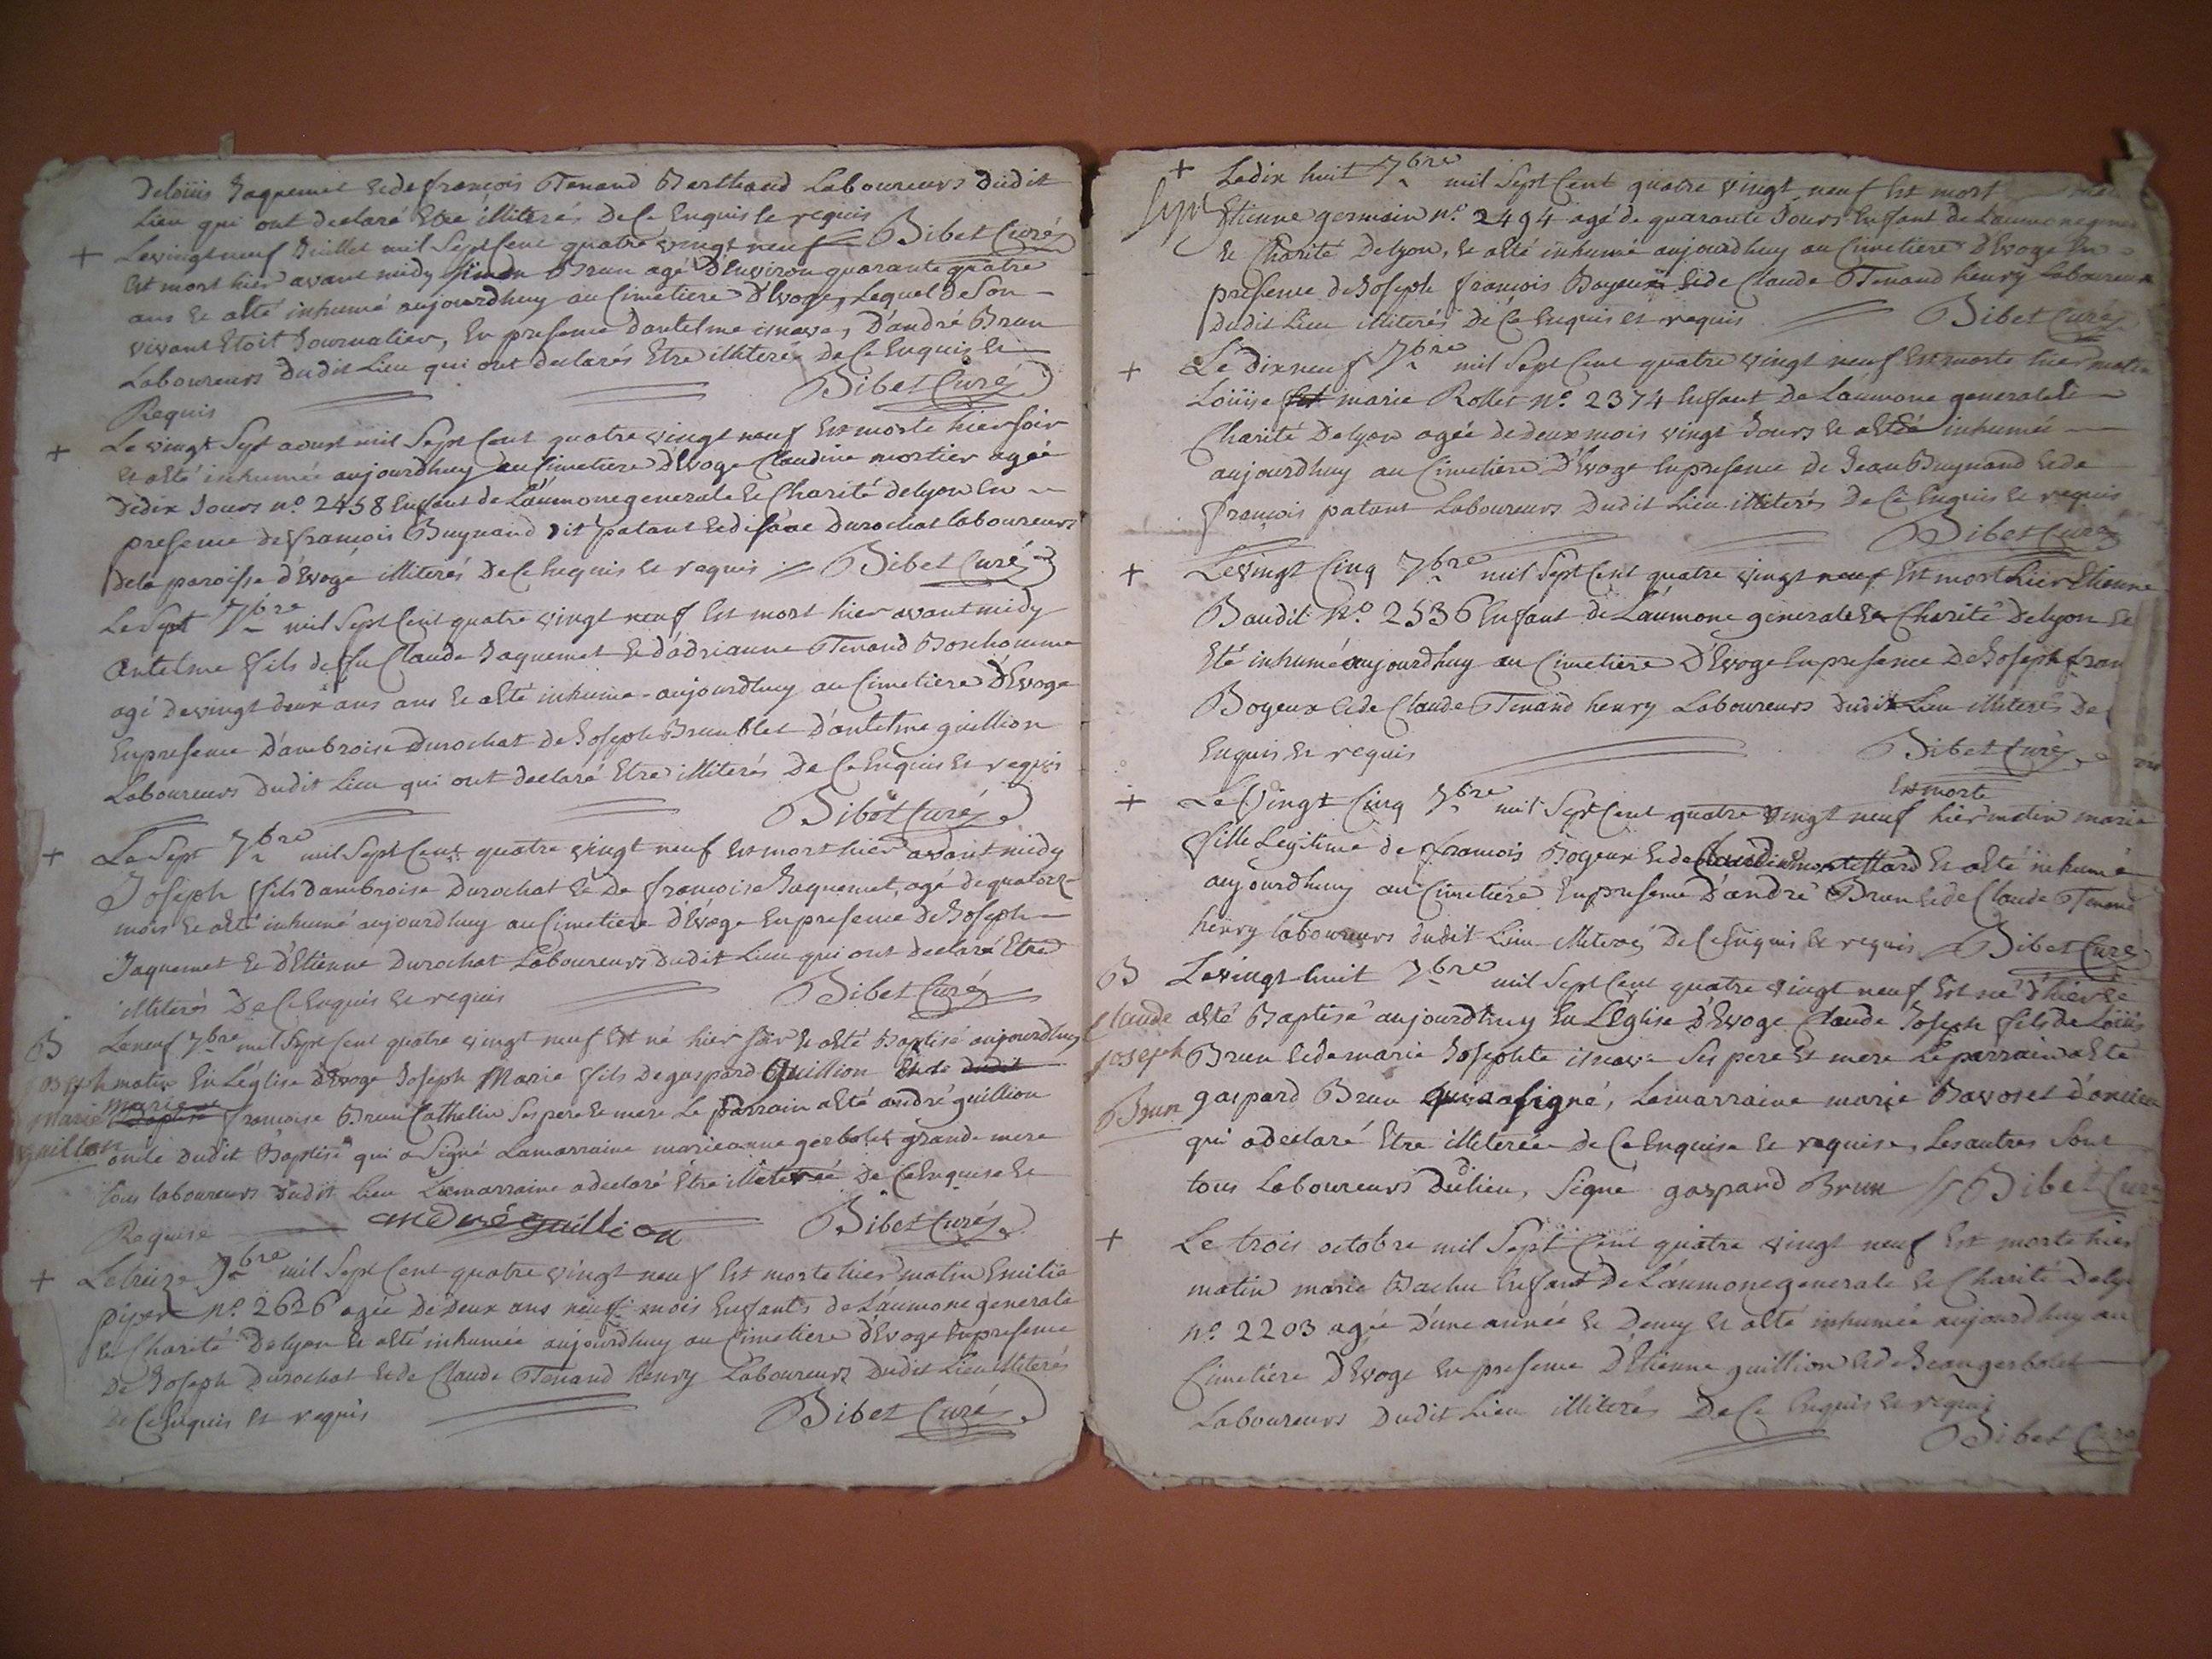 De loüis Jaquemet et de françois Tenand Berthand Laboureurs dudit
Lieu qui ont declaré Etre illiterés De Ce Enquis le requis
+ Le vingt neuf Juillet mil Sept Cent quatre vingt neuf Bibet Curé
Est mort hier avant midy Simon Brun agé D'Environ quarante quatre
ans et a été inhumé aujourdhuy au Cimetiere D'Evoge, Lequel De Son
vivant Etoit Journalier, En presence d'antelme D'andré Brun
Laboureurs Dudit Lieu qui ont declarés Etre illiterés De Ce Enquis et
Requis Bibet Curé
+ Le vingt Sept aoust mil Sept Cent quatre vingt neuf Est morte hier soir
et a été inhumée aujourdhuy au Cimetiere D'Evoge Claudine mortier agée
De dix Jours n.º 2458 Enfant de L'aumone generale et Charité de lyon En
presence de françois Buynand dit patant et d'isaac Durochat laboureurs
De la paroisse d'Evoge illiterés De Ce Enquis et requis Bibet Curé
Le Sept 7bre mil Sept Cent quatre vingt neuf Est mort hier avant midy
antelme fils de fu Claude Jaquemet et d'adrianne Tenand Boschomme
agé De vingt deux ans ans et a été inhumé aujourdhuy au Cimetiere D'Evoge
En presence D'ambroise Durochat de Joseph Brun blet D'antelme guillion
Laboureurs dudit Lieu qui ont declaré Etre illiterés De Ce Enquis et requis
Bibet Curé
+ Le Sept 7bre mil Sept Cent quatre vingt neuf Est mort hier avant midy
Joseph fils d'ambroise Durochat et De françoise Jaquemet, agé de quatorze
mois et a été inhumé aujourdhuy au Cimetiere d'Evoge En presence De Joseph
Jaquemet et d'Etienne Durochat Laboureurs dudit Lieu qui ont declaré Etre
illiterés De Ce Enquis et requis Bibet Curé
B Le neuf 7bre mil Sept Cent quatre vingt neuf Est né hier soir et a été Baptisé aujourdhuy
joseph matin En L'église D'Evoge Joseph Marie fils De gaspard Guillion Et de dudit
marie marie Baptisé françoise Brun Cathelin Ses pere et mere Le parrain a été andré guillion
guillion oncle dudit Baptisé qui a Signé La marraine marieanne gerbolet grande mere
tous laboureurs dudit Lieu La marraine a declaré Etre illiterée De Ce Enquise et
Requise andré guillion Bibet Curé
+ Le treize 7bre mil Sept Cent quatre vingt neuf Est morte hier matin Emilie
n.º 2626 agée De deux ans neuf mois Enfants de L'aumone generale
et Charité De lyon et a été inhumée aujourdhuy au Cimetiere d'Evoge En presence
De Joseph Durochat et de Claude Tenand henry Laboureurs Dudit Lieu illiterés
De Ce Enquis et requis Bibet Curé
+ Le dix huit 7bre mil Sept Cent quatre vingt neuf Est mort
Etienne germain n.º 2494 agé de quarante Jours Enfant de L'aumone
et Charité De lyon, et a été inhumé aujourdhuy au Cimetiere d'Evoge En
presence de Joseph françois Boyeux et de Claude Tenand henry Laboureurs
dudit Lieu illiterés De Ce Enquis et requis Bibet Curé
+ Le dix neuf 7bre mil Sept Cent quatre vingt neuf Est morte hier matin
Loüise marie Rollet n.º 2374 Enfant De L'aumone generale et
Charité De lyon agée de deux mois vingt Jours et a été inhumée
aujourdhuy au Cimetiere D'Evoge En presence de Jean Buynand et de
françois patant Laboureurs Dudit Lieu illiterés De Ce Enquis et requis
Bibet Curé
+ Le vingt Cinq 7bre mil Sept Cent quatre vingt neuf Est mort hier Etienne
Baudit N.º 2536 Enfant de L'aumone generale et Charité De lyon et
Eté inhumé aujourdhuy au Cimetiere D'Evoge En presence De Joseph fran
Boyeux et de Claude Tenand henry Laboureurs Dudit Lieu illiterés De
Enquis et requis Bibet Curé
Est morte
+ Le Vingt Cinq 7bre mil Sept Cent quatre vingt neuf hier matin marie
fille Legitime de françois Boyeux et de et a été inhumé
aujourdhuy au Cimetiere En presence D'andré Brun et de Claude Tenand
henry laboureurs dudit Lieu illiterés De Ce Enquis et requis Bibet Curé
B Le vingt huit 7bre mil Sept Cent quatre vingt neuf Est né d'hier et
Claude a été Baptisé aujourdhuy En L'Eglise D'Evoge Claude Joseph fils De Loüis
joseph Brun et de marie Josephte Ses pere et mere Le parrain a été
Brun gaspard Brun qui a signé, La marraine marie Bavoset
qui a declaré Etre illiterée De Ce Enquise et requise, Les autres Sont
tous Laboureurs Dudit lieu, Signé gaspard Brun Bibet Curé
+ Le trois octobre mil Sept Cent quatre vingt neuf Est morte hier
matin marie Bachu Enfant De L'aumone generale et Charité De lyo
n.º 2203 agée D'une année et Demy et a été inhumée aujourdhuy au
Cimetiere D'Evoge En presence D'Etienne guillion et de Jean gerbolet
Laboureurs Dudit Lieu illiterés De Ce Enquis et requis
Bibet Curé